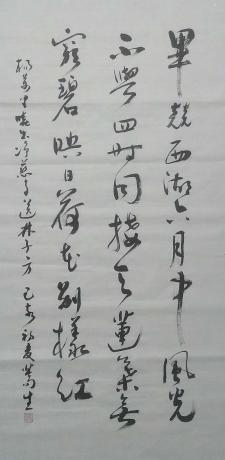 畢競西湖六月中風光
不與四時同接天蓮葉無
窮碧映日荷花別樣紅
楊萬里曉出淨慈寺送林子方 己亥初夏